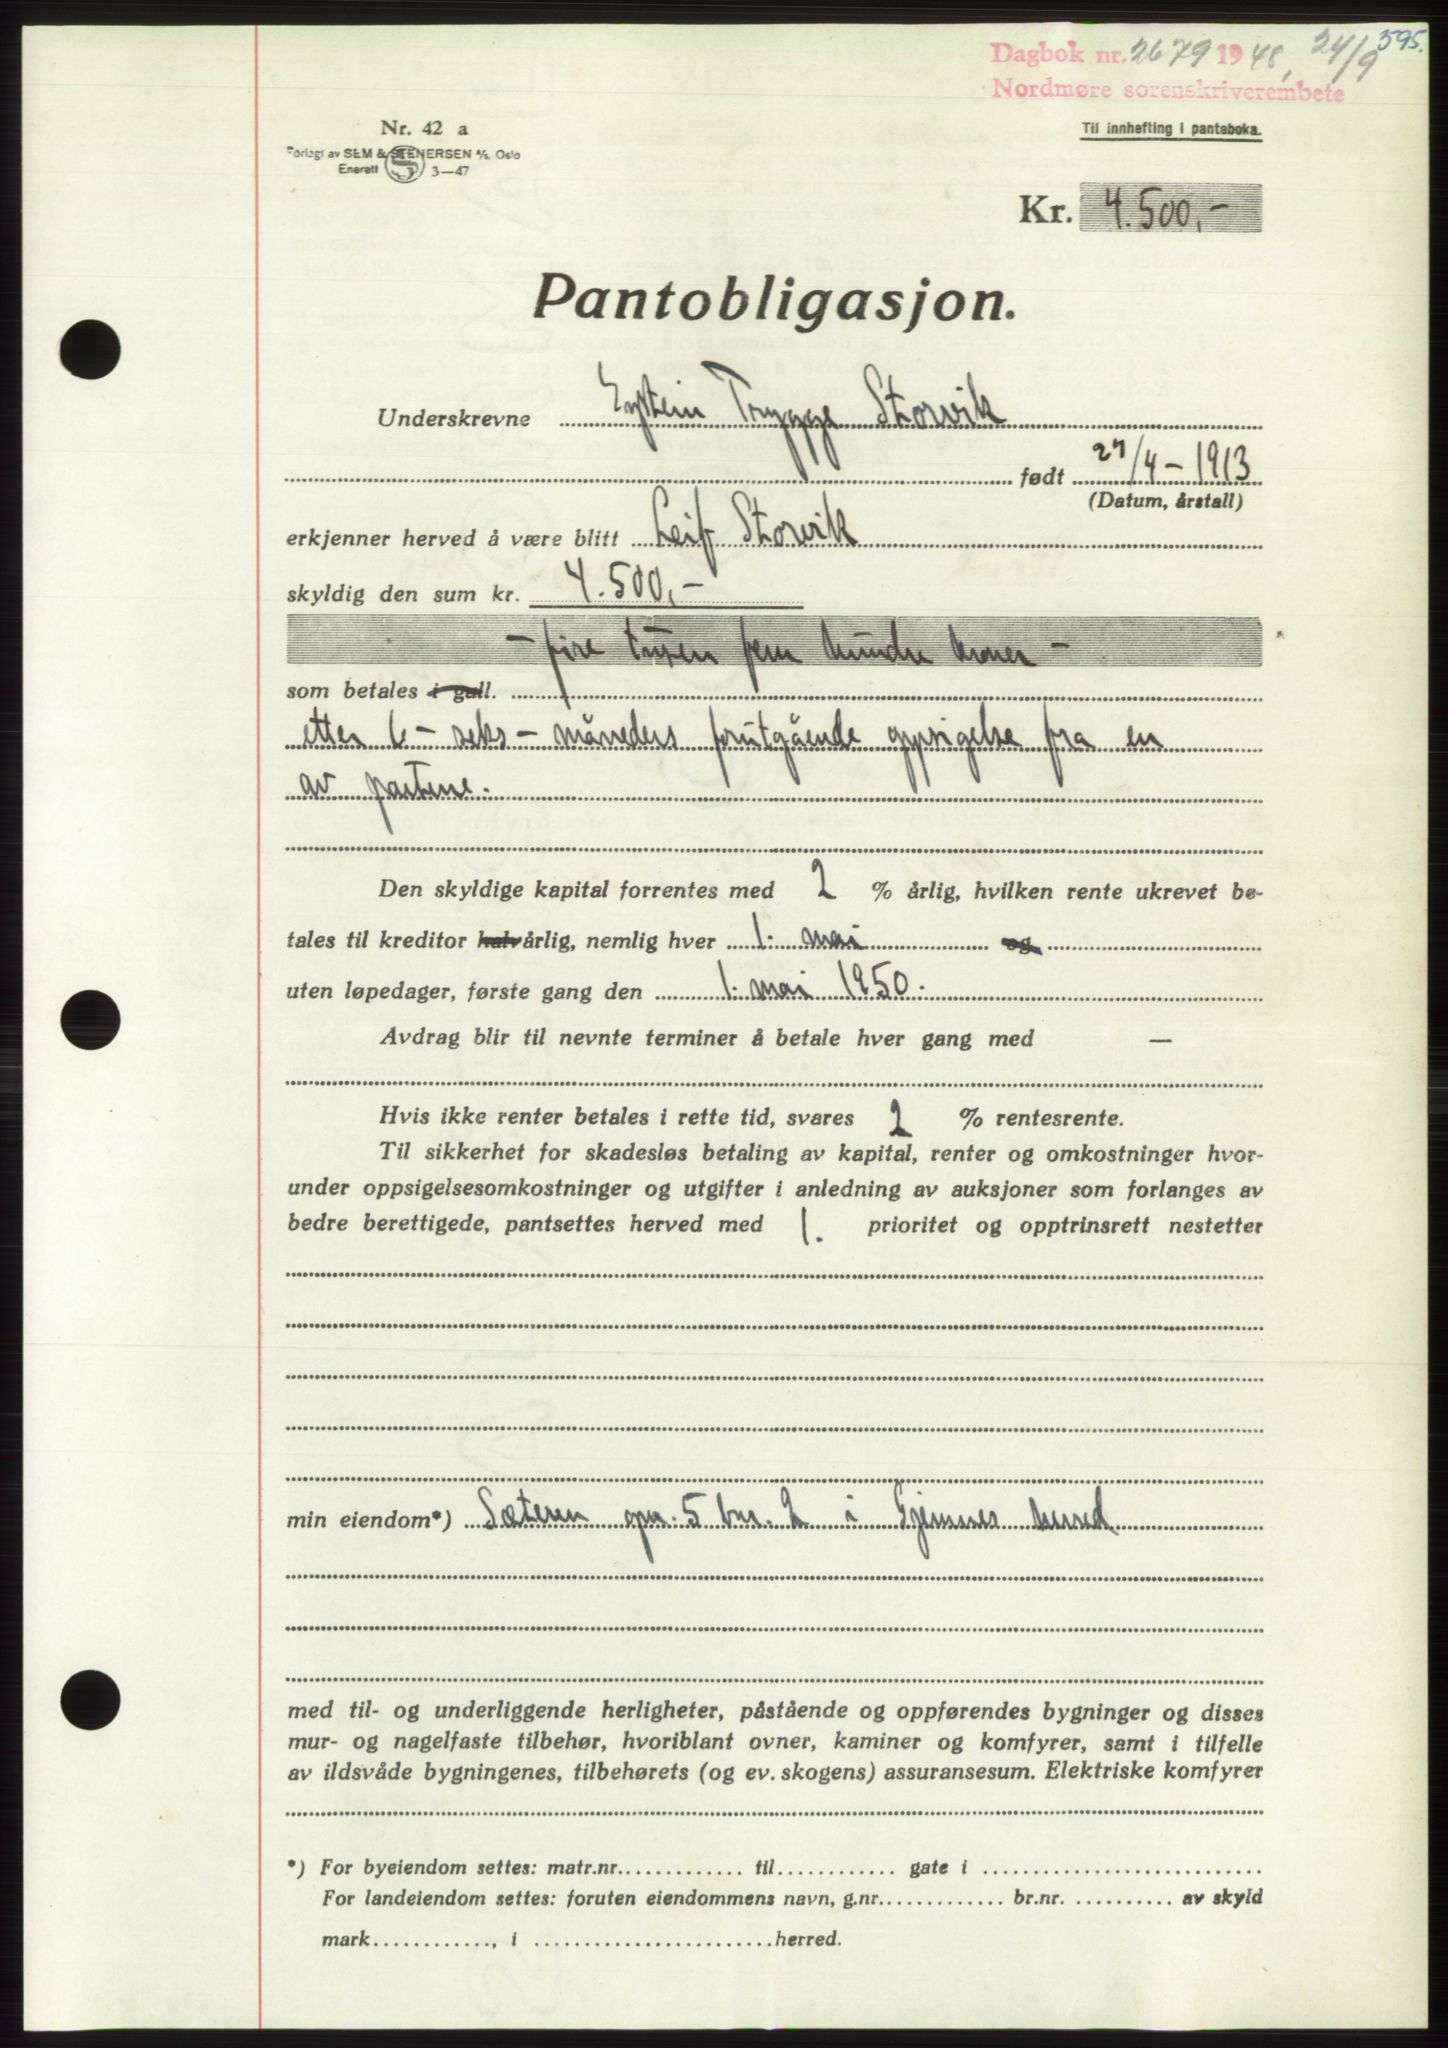 595.
Dagbok nr. 2679 1948, 24/9
Nordmøre sorenskriverembete
Nr. 42 a
Forlagt av SEM & STENERSEN A/S. Oslo
Enerett S 3—47
Til innhefting i panteboka.
Kr. 4.500,-
Pantobligasjon.
Underskrevne Eystein Trygge Storvik
født 27/4 - 1913
(Datum, årstall)
erkjenner herved å være blitt Leif Storvik
skyldig den sum kr. 4.500,-
- fire tusen fem hundre kroner -
som betales i gull.
etter 6 - seks - måneders forutgående oppsigelse fra en
av partene.
Den skyldige kapital forrentes med 2 % årlig, hvilken rente ukrevet be-
tales til kreditor halvårlig, nemlig hver 1. mai og
uten løpedager, første gang den 1. mai 1950.
Avdrag blir til nevnte terminer å betale hver gang med —
Hvis ikke renter betales i rette tid, svares 2 % rentesrente.
Til sikkerhet for skadesløs betaling av kapital, renter og omkostninger hvor-
under oppsigelsesomkostninger og utgifter i anledning av auksjoner som forlanges av
bedre berettigede, pantsettes herved med 1. prioritet og opptrinsrett nestetter
min eiendom*) Sæteren gnr. 5 bnr. 2 i Gjemnes herred
med til- og underliggende herligheter, påstående og oppførendes bygninger og disses
mur- og nagelfaste tilbehør, hvoriblant ovner, kaminer og komfyrer, samt i tilfelle
av ildsvåde bygningenes, tilbehørets (og ev. skogens) assuransesum. Elektriske komfyrer
*) For byeiendom settes: matr.nr............. til............ gate i ............................
For landeiendom settes: foruten eiendommens navn, g.nr............. br.nr. .......... av skyld
mark............, i ........................herred.